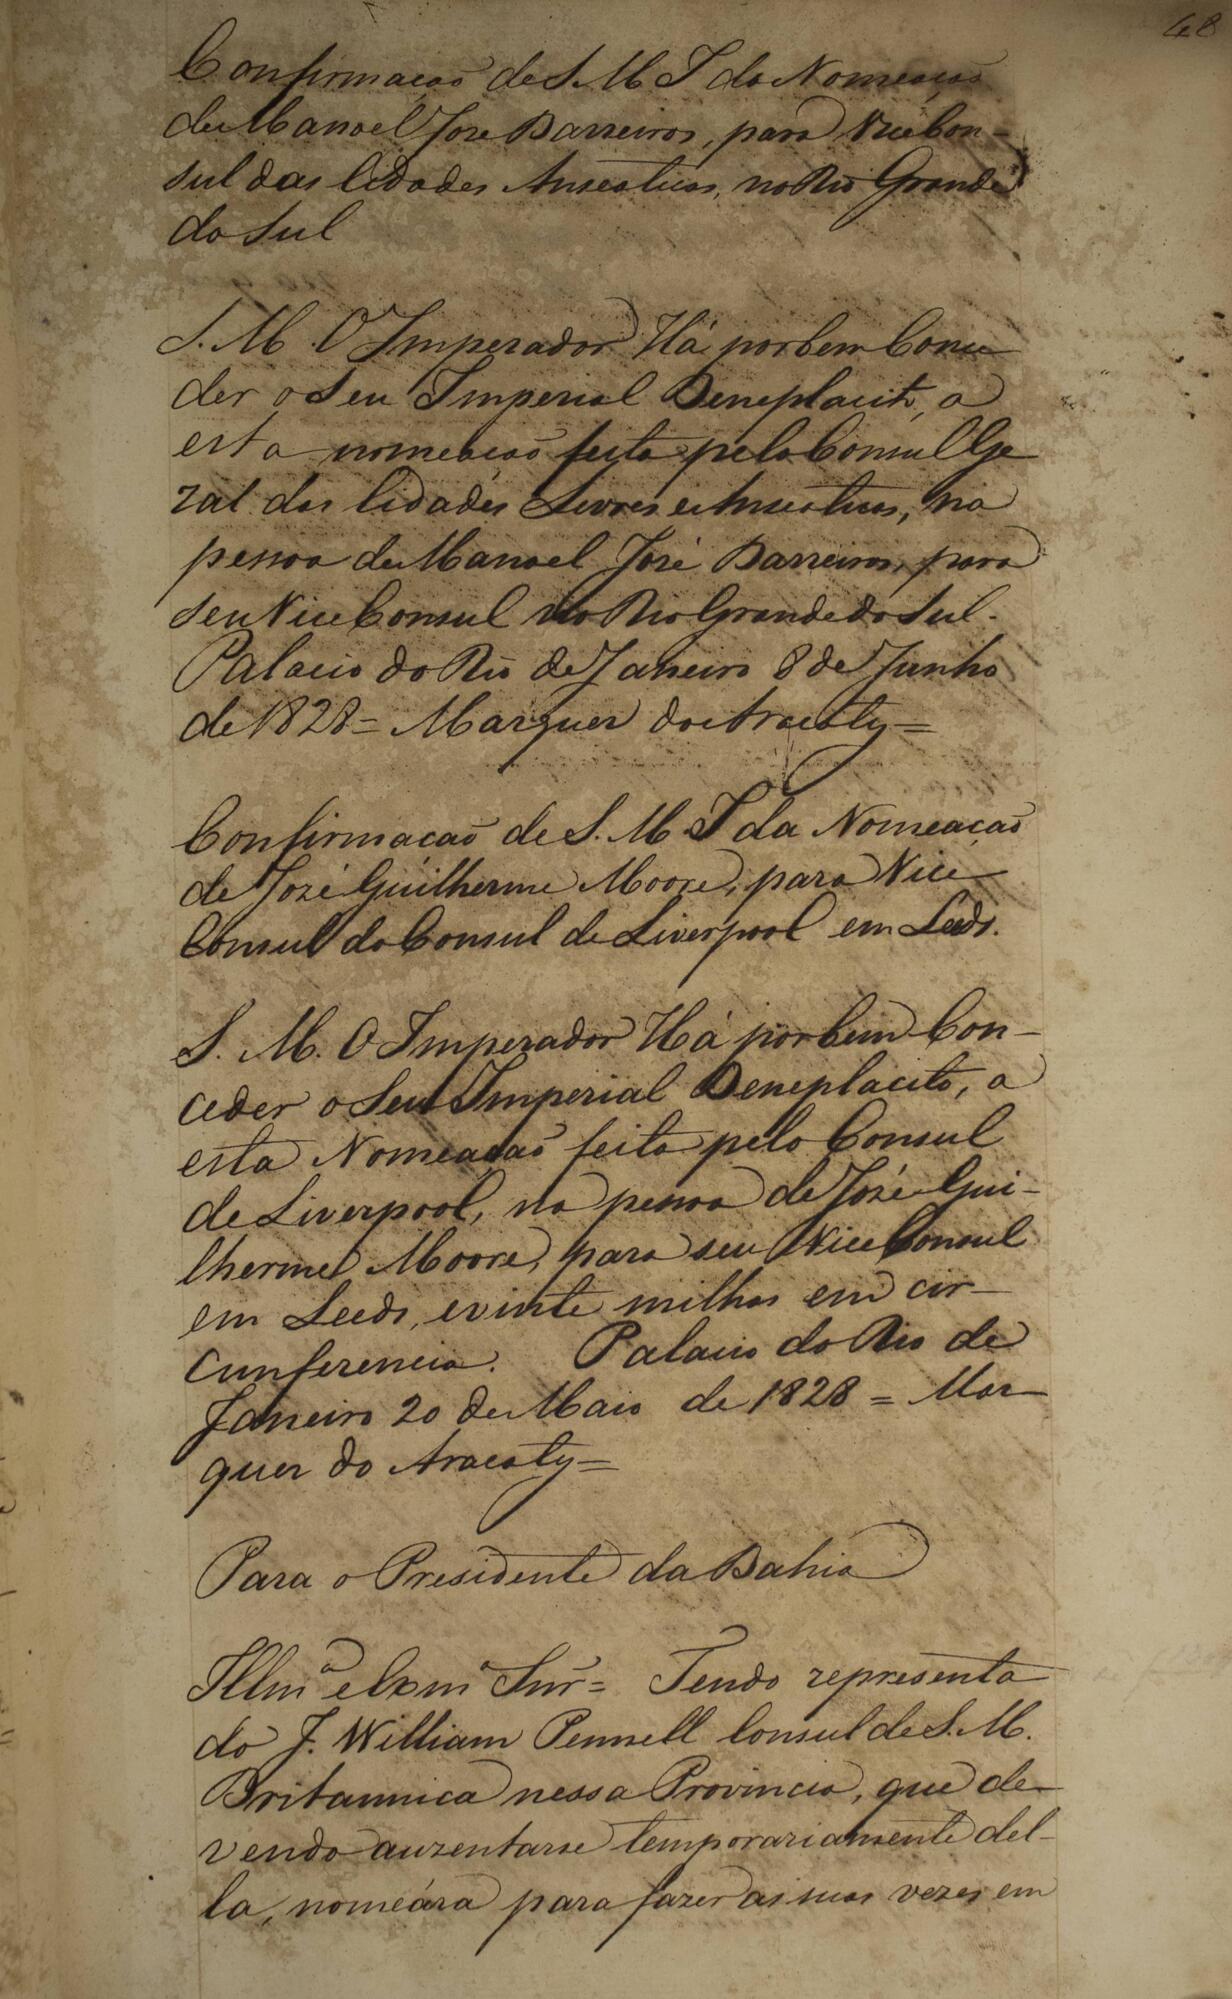 48
Confirmação de S. M. I da Nomeação
de Manoel Joze Barreiros, para Vice Con-
sul das Cidades Anseaticas, no Rio Grande
do Sul
S. M. O Imperador Há por bem Conce
der o Seu Imperial Beneplacito, a
esta nomeação feita pelo Consul Ge
ral das Cidades Livres e Anseaticas, na
pessoa de Manoel José Barreiros, para
seu Vice Consul no Rio Grande do Sul.
Palacio do Rio de Janeiro 8 de Junho
de 1828 = Marquez do Aracaty =
Confirmacaõ de S. M. I da Nomeação
de Jozé Guilherme Moore, para Vice
Consul do Consul de Liverpool em Leeds.
S. M. O Imperador Há por bem Con-
ceder o Seu Imperial Beneplacito, a
esta Nomeação feita pelo Consul
de Liverpool, na pessoa de José Gui-
lherme Moore, para seu Vice Consul
em Leeds, e vinte milhas em cir-
cunferencia. Palacio do Rio de
Janeiro 20 de Maio de 1828 = Mar
quez do Aracaty =
Para o Presidente da Bahia
Illmº e Exmº Snr = Tendo representa
do J. William Pennell Consul de S. M.
Britannica nessa Provincia, que de-
vendo auzentarse temporariamente del-
la, nomeára para fazer as suas vezes em